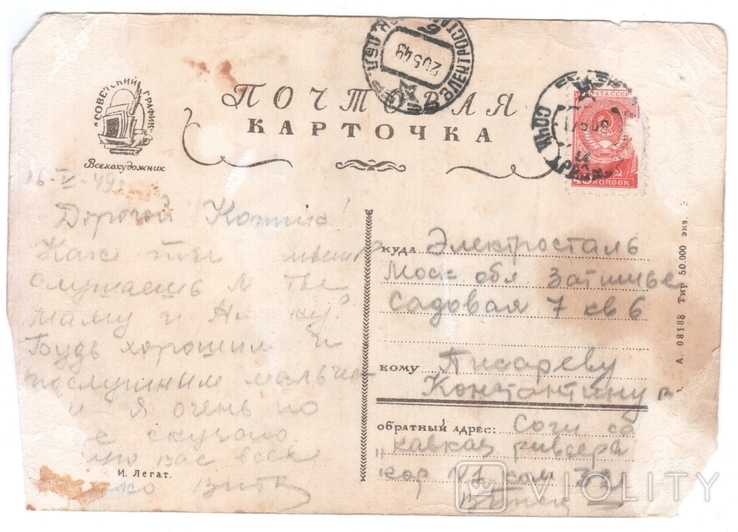 СОВЕТСКИЙ ГРАФИК
Всекохудожник
ПОЧТОВАЯ
КАРТОЧКА
ЭЛЕКТРОСТ
20549
СОЧИ
ПОЧТА СССР
40 КОПЕЕК
16-V-49
Дорогой Котик!
Как ты
слушаешь ли ты
маму и
Будь хорошим и
послушным мальчи
и Я очень по
скучаю
вас всех
куда Электросталь
Моск обл Затишье
Садовая 7 кв 6
кому Писареву
Константину В
обратный адрес: Сочи
"Кавказ ривьера
кор VI ком 321
И. Легат.
А. 08188 Тир 50.000 экз.
VIOLITY